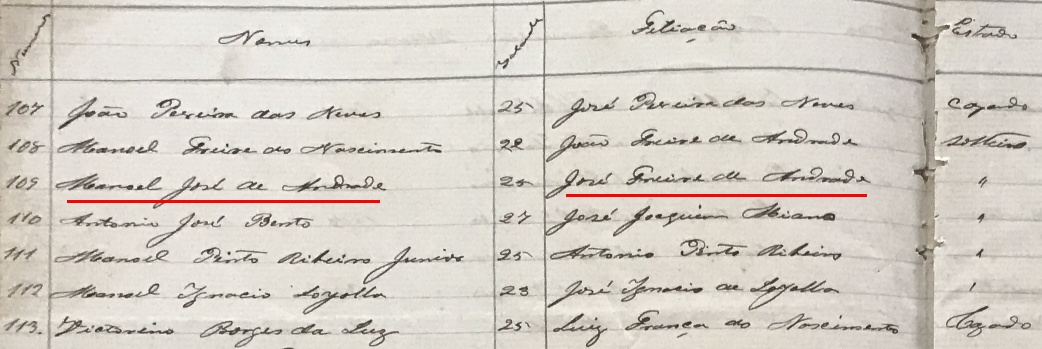 Numeros Nomes Idade Filiação Estado
107 João Pereira das Neves 25 José Pereira das Neves Cazado
108 Manoel Freire do Nascimento 22 João Freire de Andrade solteiro
109 Manoel José de Andrade 25 José Freire de Andrade "
110 Antonio José Bento 27 José Joaquim "
111 Manoel Pinto Ribeiro Junior 25 Antonio Pinto Ribeiro "
112 Manoel Ignacio Loyolla 23 José Ignacio de Loyolla "
113. Victorino Borges da Luz 25 Luiz França do Nascimento Cazado